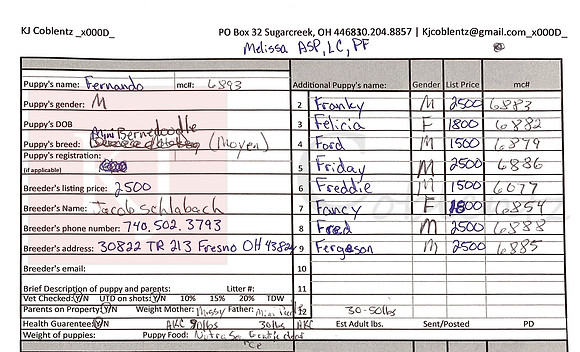 KJ Coblentz _x000D_ PO Box 32 Sugarcreek, OH 446830.204.8857 | Kjcoblentz@gmail.com_x000D_
Melissa ASP, LC, PF
Puppy's name: Fernando mc#: 6893 Additional Puppy's name: Gender List Price mc#
Puppy's gender: M 2 Franky M 2500 6883
Puppy's DOB 3 Felicia F 1800 6882
Mini Bernedoodle
Puppy's breed: (Moyen) 4 Ford M 1500 6879
Puppy's registration:
(if applicable) 5 Friday M 2500 6886
Breeder's listing price: 2500 6 Freddie M 1500 6077
Breeder's Name: Jacob Schlabach 7 Fancy F 1800 6854
Breeder's phone number: 740.502.3793 8 Fred M 2500 6888
Breeder's address: 30822 TR 213 Fresno OH 43824 9 Ferguson M 2500 6885
Breeder's email: 10
Brief Description of puppy and parents: Litter #: 11
Vet Checked: Y/N UTD on shots: Y/N 10% 15% 20% TDW
Parents on Property: Y/N Weight Mother: Missy Father: Mini 12 30-50lbs
Health Guarantee: Y/N AKC 30lbs AKC Est Adult lbs. Sent/Posted PD
Weight of puppies: Puppy Food: Nutra